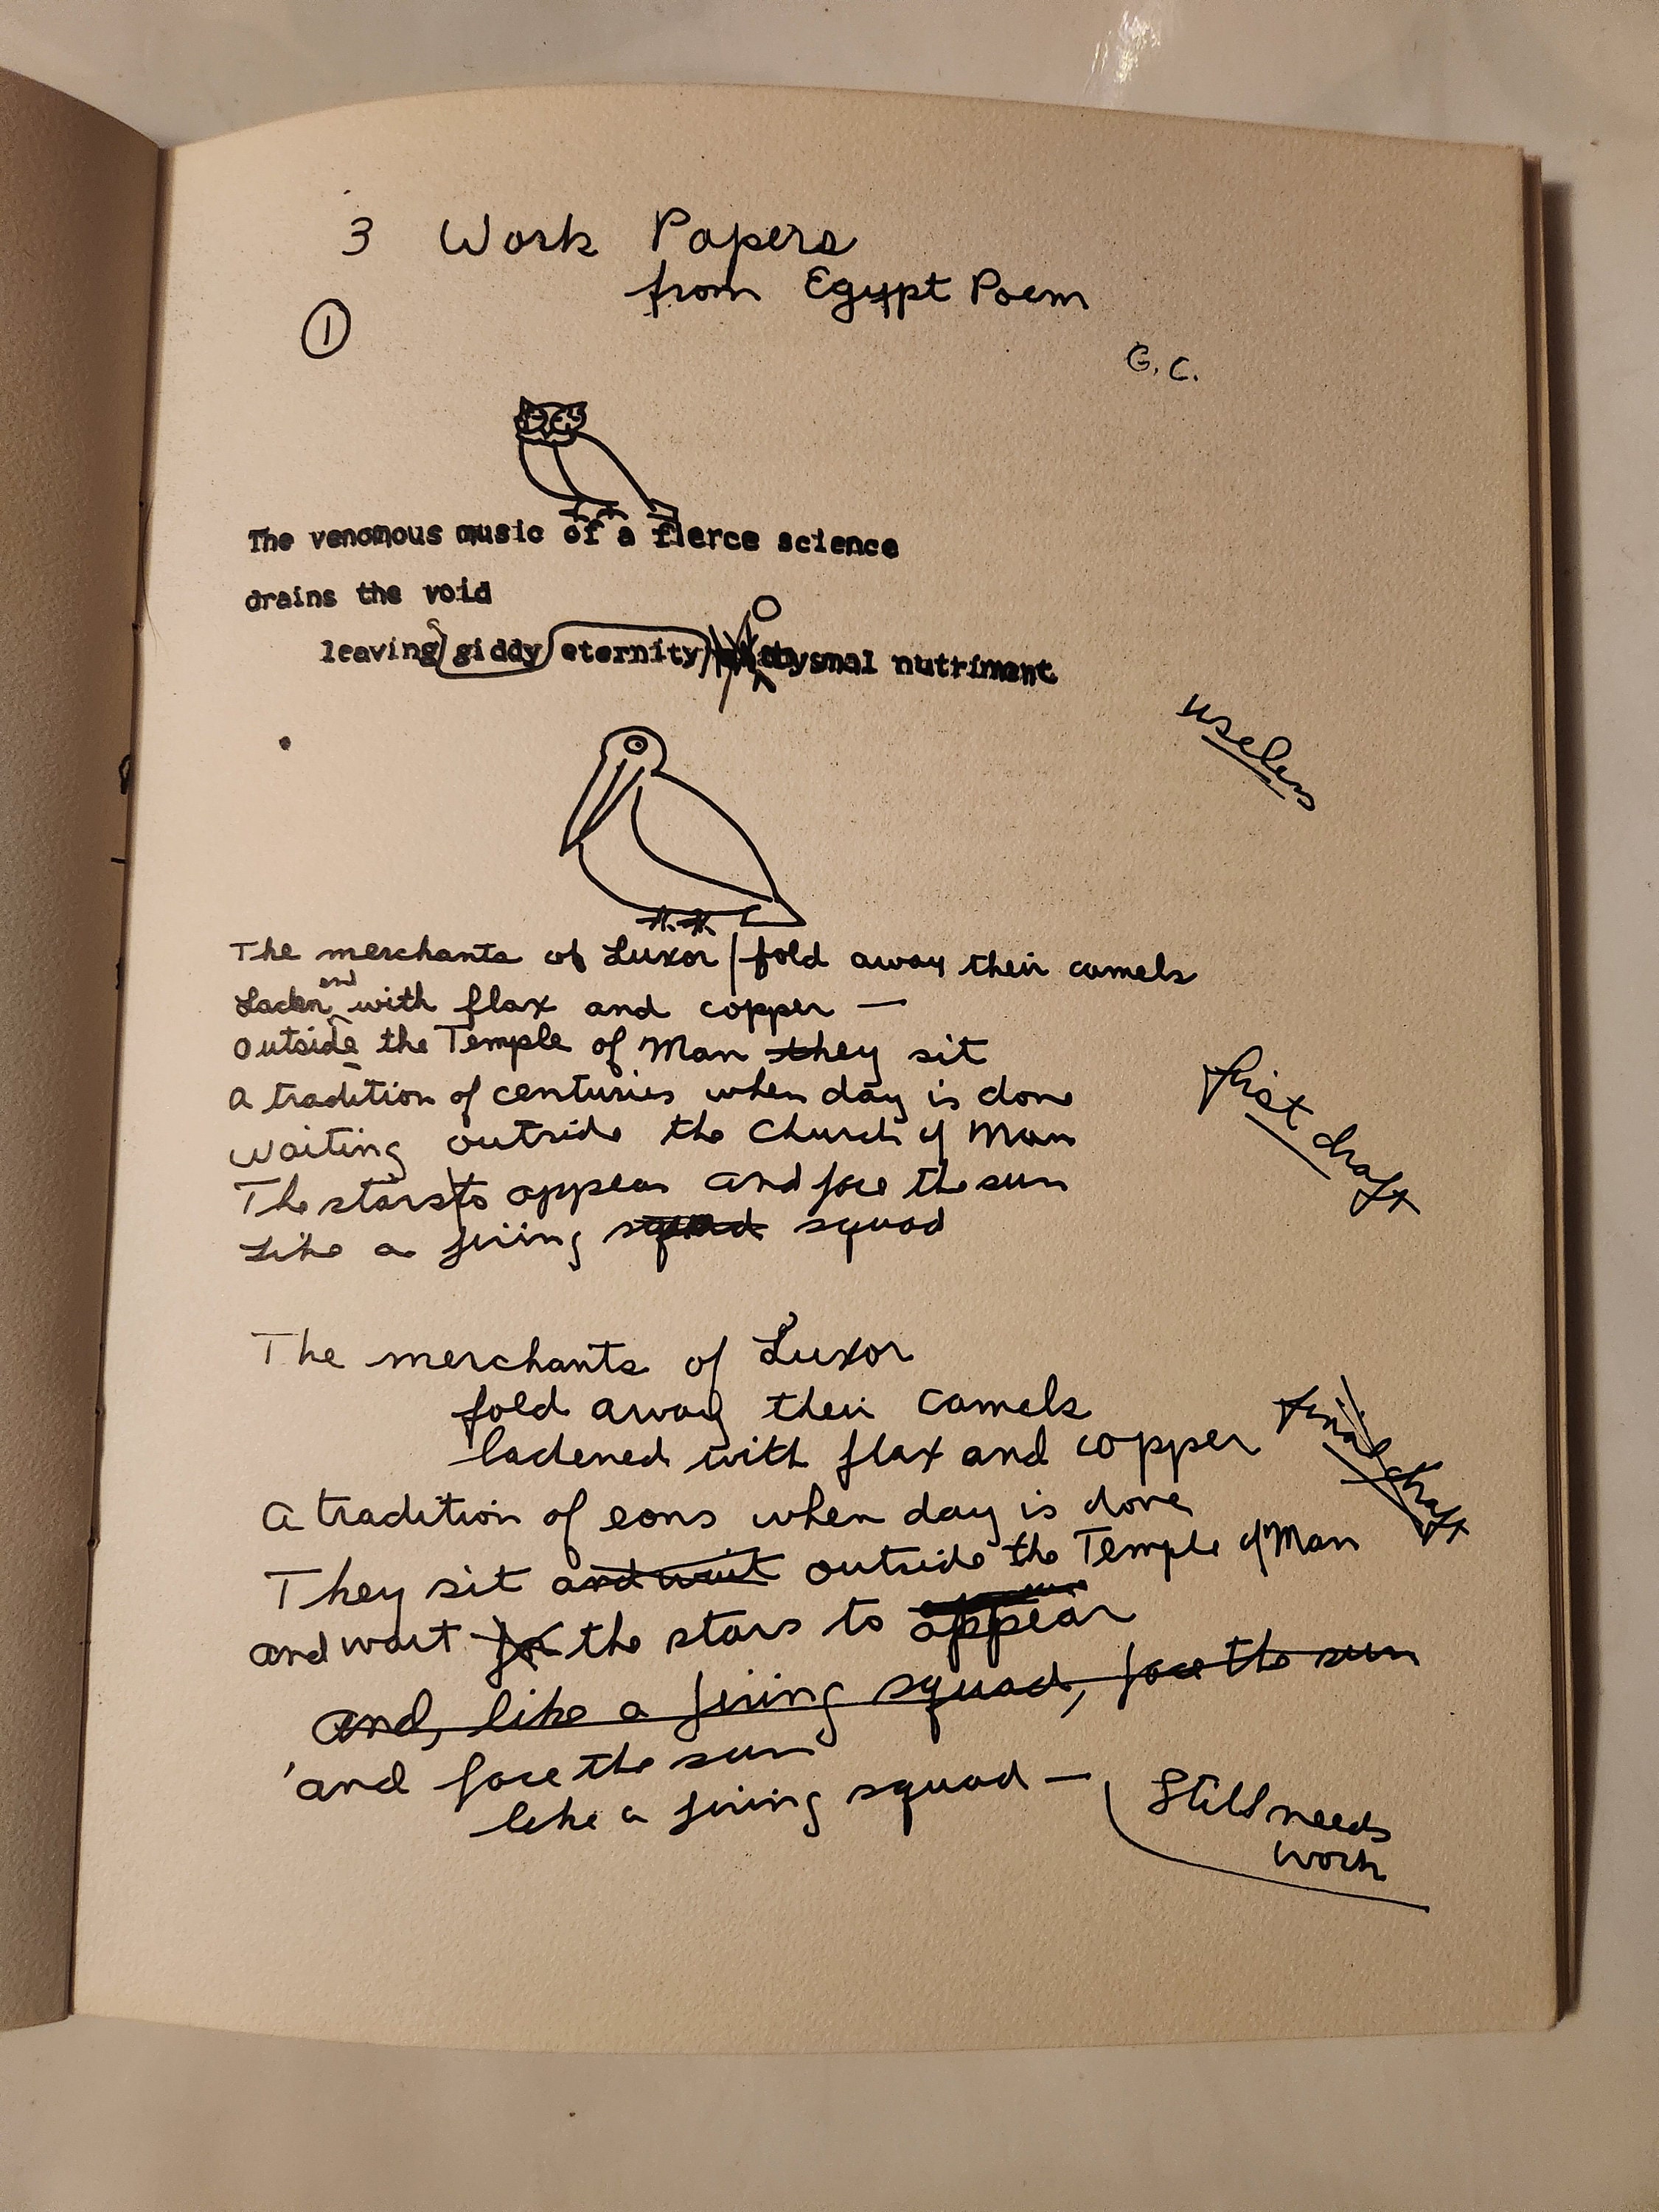 3 Work Papers
from Egypt Poem
①
G. C.
The venomous music of a fierce science
drains the void
leaving giddy eternity abysmal nutriment
useless
The merchants of Luxor / fold away their camels
Laden^ened with flax and copper —
outside the Temple of Man they sit
a tradition of centuries when day is done
waiting outside the Church of Man
The stars to appear and face the sun
Like a firing squad squad
first draft
The merchants of Luxor
fold away their camels
ladened with flax and copper
final draft
A tradition of eons when day is done
They sit and wait outside the Temple of Man
and wait for the stars to appear
and, like a firing squad, face the sun
and face the sun
like a firing squad —
Still needs
work